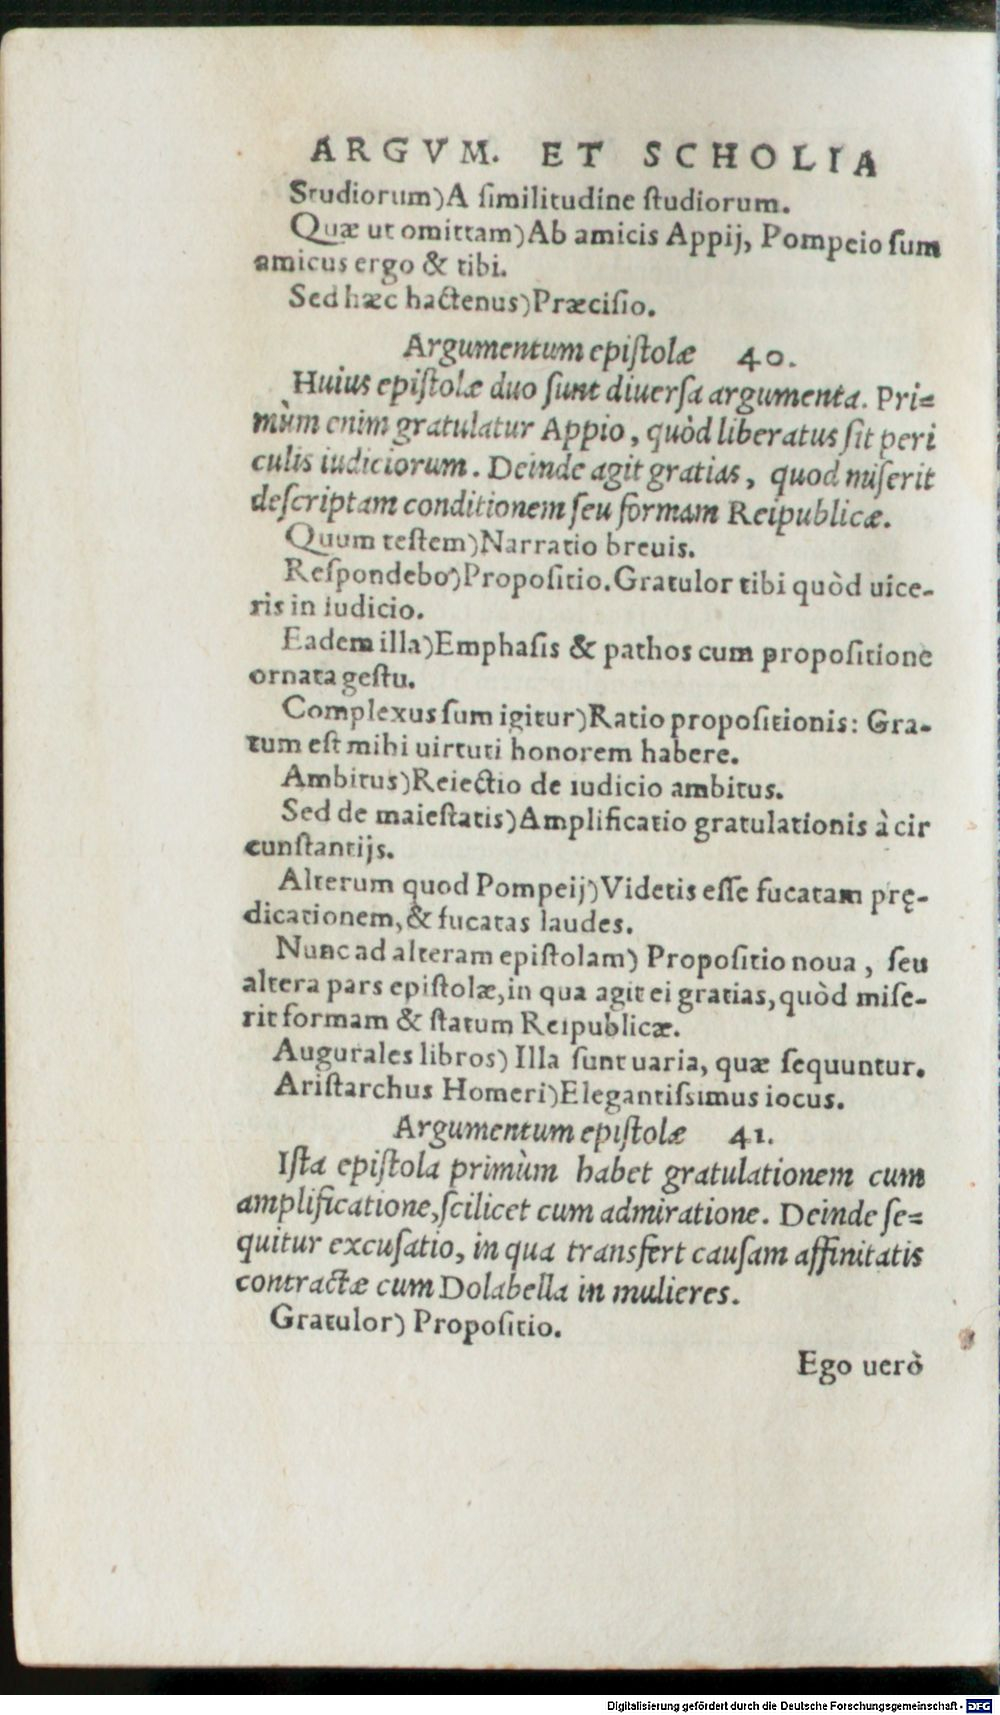 ARGVM. ET SCHOLIA
Studiorum)A ſimilitudine ſtudiorum.
Quæ ut omittam)Ab amicis Appij, Pompeio ſum
amicus ergo & tibi.
Sed hæc hactenus)Præciſio.
Argumentum epiſtolæ 40.
Huius epiſtolæ duo ſunt diuerſa argumenta. Pri=
mùm enim gratulatur Appio, quòd liberatus ſit peri
culis iudiciorum. Deinde agit gratias, quod miſerit
deſcriptam conditionem ſeu formam Reipublicæ.
Quum teſtem)Narratio breuis.
Reſpondebo)Propoſitio.Gratulor tibi quòd uice-
ris in iudicio.
Eadem illa)Emphaſis & pathos cum propoſitione
ornata geſtu.
Complexus ſum igitur)Ratio propoſitionis: Gra-
tum eſt mihi uirtuti honorem habere.
Ambitus)Reiectio de iudicio ambitus.
Sed de maieſtatis)Amplificatio gratulationis à cir
cunſtantijs.
Alterum quod Pompeij)Videtis eſſe fucatam prę-
dicationem,& fucatas laudes.
Nunc ad alteram epiſtolam) Propoſitio noua, ſeu
altera pars epiſtolæ,in qua agit ei gratias,quòd miſe-
rit formam & ſtatum Reipublicæ.
Augurales libros) Illa ſunt uaria, quæ ſequuntur.
Ariſtarchus Homeri)Elegantiſsimus iocus.
Argumentum epiſtolæ 41.
Iſta epiſtola primùm habet gratulationem cum
amplificatione,ſcilicet cum admiratione. Deinde ſe=
quitur excuſatio, in qua transfert cauſam affinitatis
contractæ cum Dolabella in mulieres.
Gratulor) Propoſitio.
Ego uerò
Digitalisierung gefördert durch die Deutsche Forschungsgemeinschaft - DFG